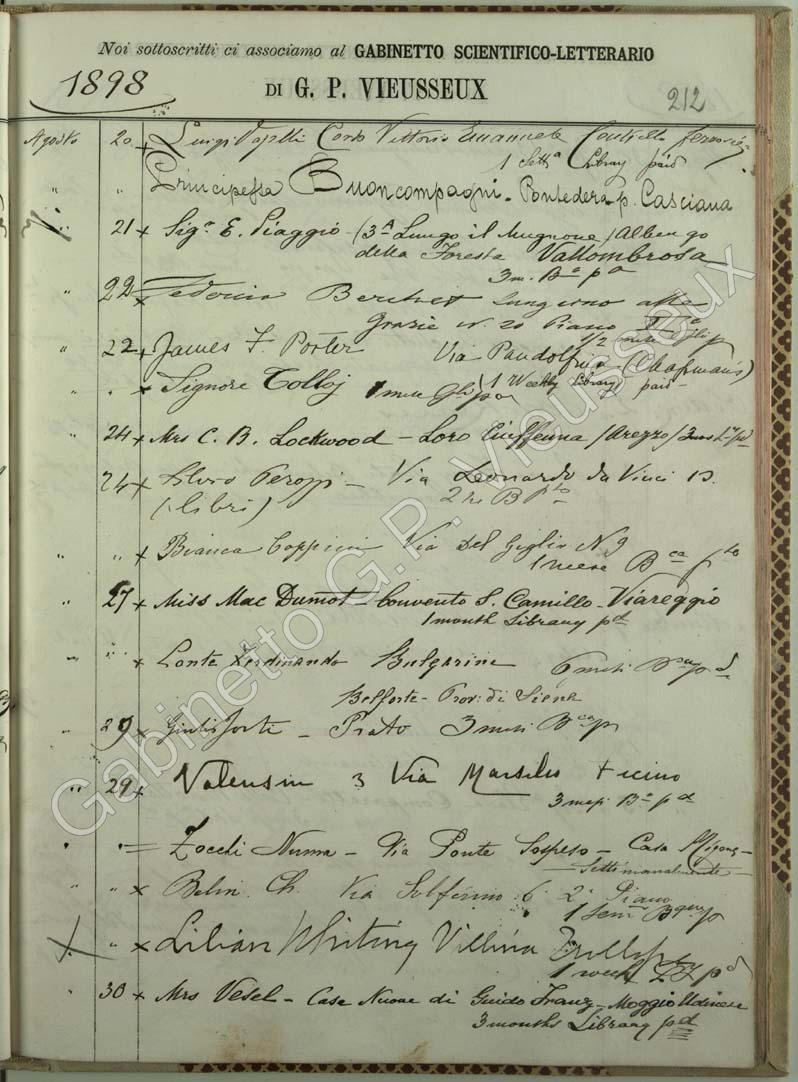 Noi sottoscritti ci associamo al GABINETTO SCIENTIFICO-LETTERARIO
1898
DI G. P. VIEUSSEUX
212
Agosto 20 x Luigi Corso Vittorio Emanuele
1 Setta Library paid
" " Principessa Buoncompagni - Pontedera p. Casciana
21 x Sigr. E. Piaggio - (3A Lungo il Mugnone) Albergo
della Foresta Vallombrosa
3 m. Ba pa
" 22 x Lungarno alle
Grazie N. 20 Piano
" 22 x James F. Porter Via Pandolfini (Chapman's)
1 Weekly Library paid
" x Signore Tolloj 1 mese
" 24 x Mrs C. B. Lockwood - Loro Ciuffenna (Arezzo) 3 mos
24 x Via Leonardo da Vinci
(libri)
" " x Bianca Coppini Via del Giglio N 9
1 mese Bca pto
" 27 x Miss Mac - Convento S. Camillo - Viareggio
1 month Library pd
" " x Conte Ferdinando Bulgarini 6 mesi
Belforte - Prov: di Siena
" 29 x Giulio - Prato 3 mesi Bca p
" 29 x Valensin 3 Via Marsilio Ficino
3 mesi Ba pd
" = Zocchi Numa - Via Ponte Sospeso - Casa
Settimanalmente
" " x Belin Ch. Via Solferino 6 2o Piano
1 sem
X " x Lilian Whiting Villino Trollope
1 week pd
" 30 x Mrs Vesel - Case Nuove di Guido Franz - Moggio Udinese
3 months Library pd
Gabinetto G.P. Vieusseux